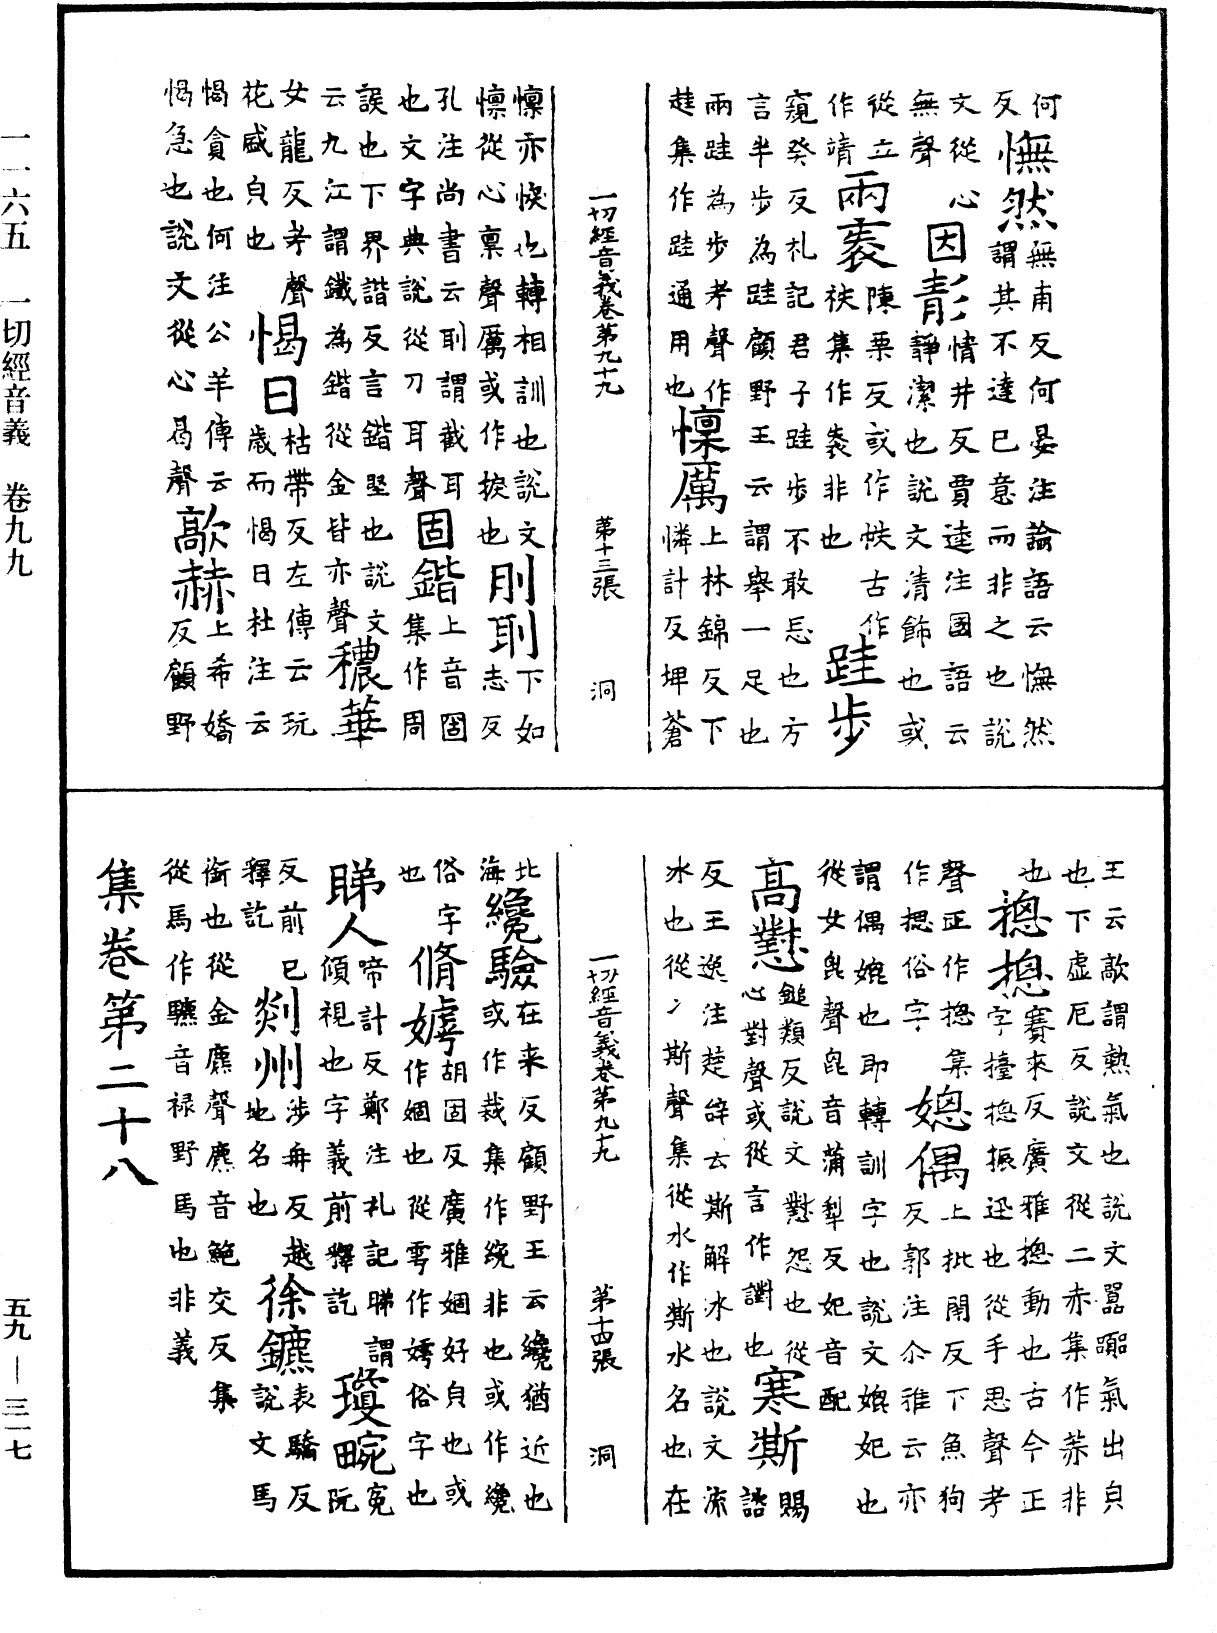 何
反
憮然無甫反何晏注論語云憮然
謂其不達已意而非之也說
文從心
無聲
因彰情井反賈逵注國語云
靜潔也說文清飾也或
從立
作靖
兩袠陳栗反或作帙古作
袟集作袠非也
跬步
窺癸反礼記君子跬步不敢忘也方
言半步為跬顧野王云謂舉一足也
兩跬為步考聲作
䞨集作跬通用也
懍厲上林錦反下
憐計反埤蒼
一切經音義卷第九十九 第十三張 洞
懍亦悷也轉相訓也說文
懍從心稟聲厲或作捩也
刖刵下如
志反
孔注尚書云刵謂截耳
也文字典說從刀耳聲
固鍇上音固
集作周
誤也下界諧反言鍇堅也說文
云九江謂鐵為鍇從金皆亦聲
穠華
女龍反考聲
花盛皃也
愒日枯帶反左傳云玩
歲而愒日杜注云
愒貪也何注公羊傳云
愒急也說文從心曷聲
歊赫上希嬌
反顧野
王云歊謂熱氣也說文嚻嘔氣出皃
也下虛厄反說文從二赤集作菾非
也
摠摠賽來反廣雅摠動也古今正
字擡摠振迅也從手思聲考
聲正作摠集
作揌俗字
媲偶上批閇反下魚狗
反郭注尒雅云亦
謂偶媲也即轉訓字也說文媲妃也
從女㲋聲㲋音蒲犁反妃音配
高懟鎚類反說文懟怨也從
心對聲或從言作譵也
寒澌賜
諮
反王逸注楚辞云斯解冰也說文流
冰也從冫斯聲集從水作澌水名也在
一切經音義卷第九十九 第十四張 洞
北
海
纔驗在来反顧野王云纔猶近也
或作裁集作綄非也或作纔
俗字
也
脩嫮胡固反廣雅婟好皃也或
作婟也從雩作嫮俗字也
睇人啼計反鄭注礼記睇謂
傾視也字義前釋訖
瓊畹寃
阮
反前已
釋訖
剡州涉冉反越
地名也
徐鑣表驕反
說文馬
銜也從金麃聲麃音鮑交反集
從馬作驫音禄野馬也非義
集卷第二十八
一一六五 一切經音義 卷九九
五九—三一七